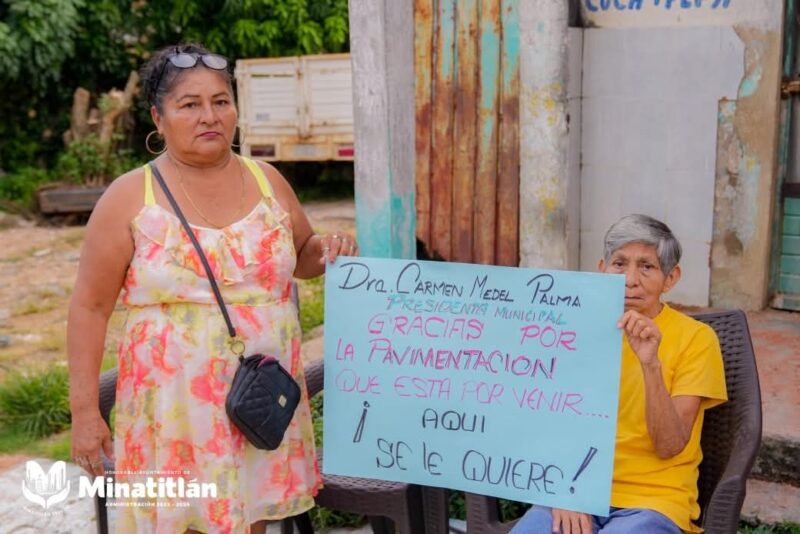 Dra. Carmen Medel Palma
Presidenta Municipal
Gracias por
la Pavimentacion
Que esta por venir....
¡ Aqui
se le Quiere !
HONORABLE AYUNTAMIENTO DE
Minatitlán